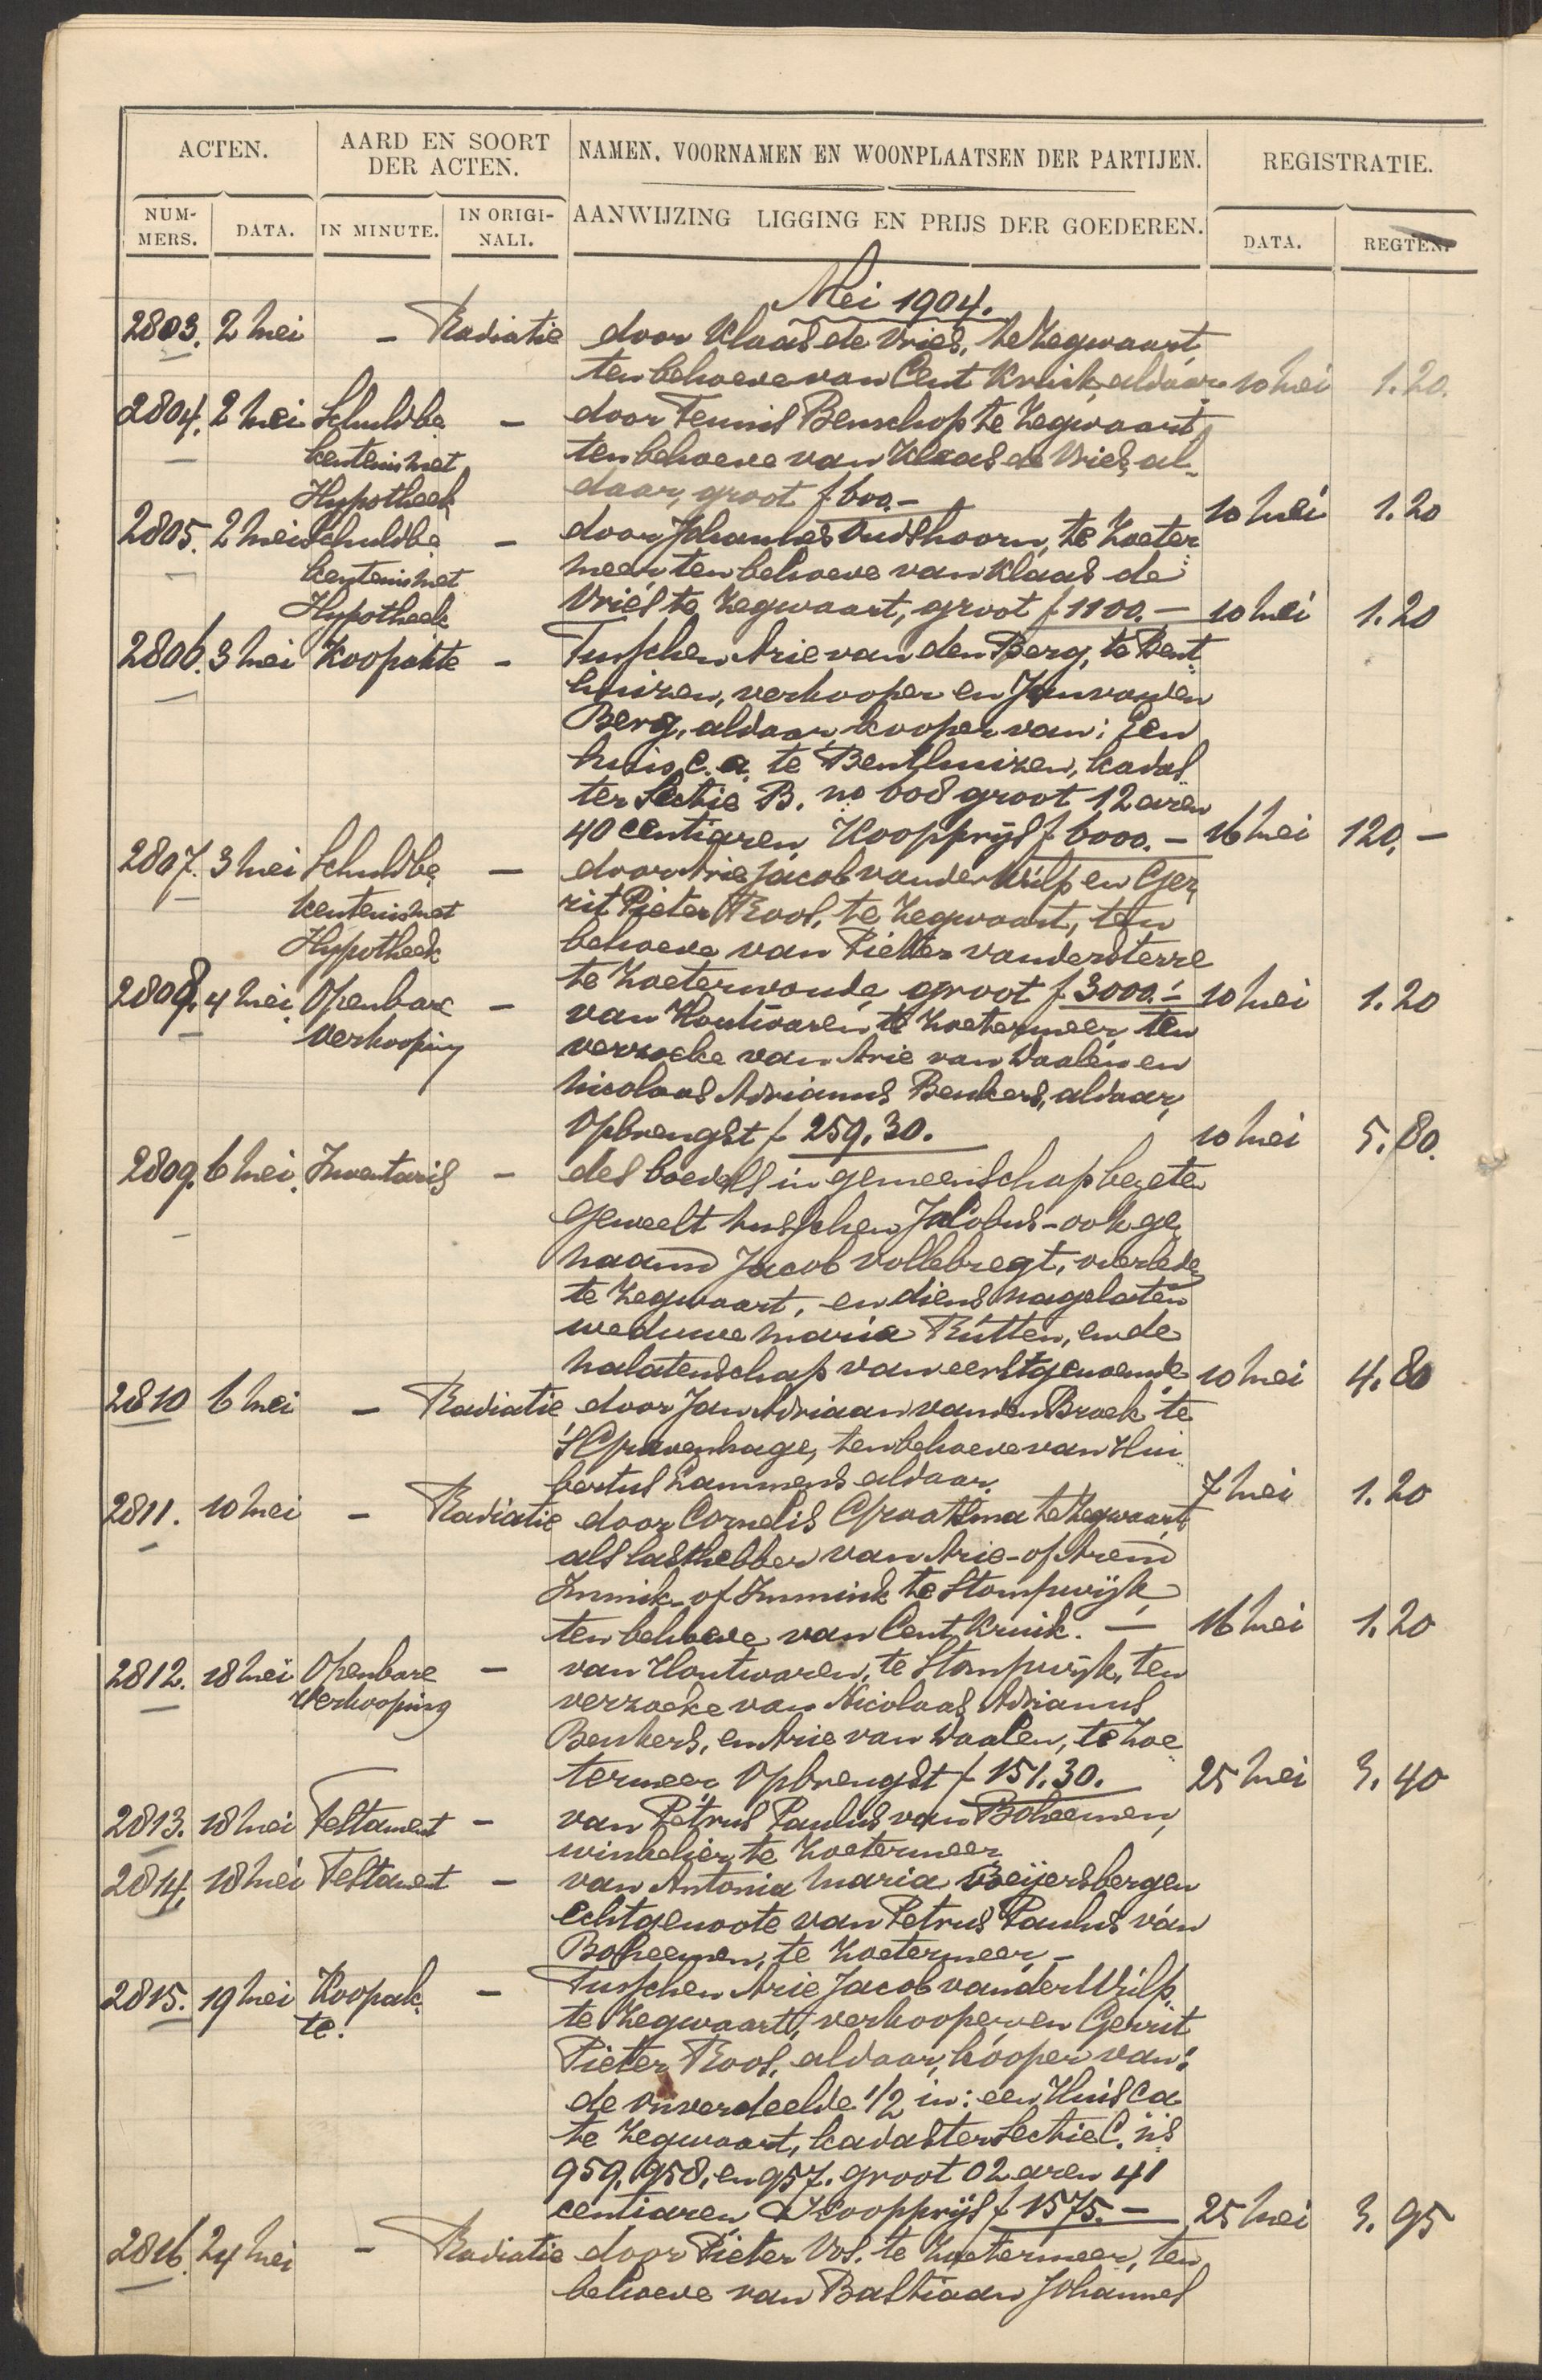 ACTEN.
AARD EN SOORT DER ACTEN.
NAMEN, VOORNAMEN EN WOONPLAATSEN DER PARTIJEN.
REGISTRATIE.
NUM-MERS.
DATA.
IN MINUTE.
IN ORIGI-NALI.
AANWIJZING LIGGING EN PRIJS DER GOEDEREN.
DATA.
REGTEN.
Mei 1904.
2803. 2 Mei - Radiatie door Klaas de Vries, te Zegwaart,
ten behoeve van Cent Kruik, aldaar 10 Mei 1.20.
2804. 2 Mei Schuldbe - door Teunis Benschop te Zegwaart
kentenis met ten behoeve van Klaas de Vries, al-
Hypotheek daar, groot f 600.- 10 Mei 1.20
2805. 2 Mei Schuldbe - door Johannes Oudshoorn, te Zoeter
kentenis met meer, ten behoeve van Klaas de
Hypotheek Vries te Zegwaart, groot f 1100.- 10 Mei 1.20
2806. 3 Mei Koopakte - Tusschen Arie van den Berg, te Bent
huizen, verkooper en Jan van den
Berg, aldaar, kooper van: Een
huis c.a. te Benthuizen, kadas
ter Sectie B. no 608 groot 12 aren
40 centiaren Koopprijs f 6000.- 16 Mei 120.-
2807. 3 Mei Schuldbe - door Arie Jacob van der Wilp en Ger
kentenis met rit Pieter Kool, te Zegwaart, ten
Hypotheek behoeve van Pieter van der Sterre
te Zoeterwoude groot f 3000.- 10 Mei 1.20
2808. 4 Mei Openbare - van Houtwaren, te Zoetermeer, ten
Verkooping verzoeke van Arie van Daalen en
Nicolaas Adrianus Benkers, aldaar,
Opbrengst f 259.30. 10 Mei 5.80.
2809. 6 Mei. Inventaris - des boedels in gemeenschap bezeten
geweest tusschen Jacobus - ook ge
naamd Jacob Vollebregt, overleden
te Zegwaart, en diens nagelaten
weduwe Maria Rutten, en de
nalatenschap van eerstgenoemde 10 Mei 4.80
2810 6 Mei - Radiatie door Jan Adriaan van den Broek te
'S Gravenhage, ten behoeve van Hui
bertus Lammens aldaar. 7 Mei 1.20
2811. 10 Mei - Radiatie door Cornelis Grootsma te Zegwaart,
als lasthebber van Arie - of Arend
Immik of Immink te Stompwijk,
ten behoeve van Cent Kruik. - 16 Mei 1.20
2812. 18 Mei Openbare - van Houtwaren, te Stompwijk, ten
Verkooping verzoeke van Nicolaas Adrianus
Benkers, en Arie van Daalen, te Zoe
termeer, Opbrengst f 151.30. 25 Mei 3.40
2813. 18 Mei Testament - van Petrus Paulus van Boheemen,
winkelier, te Zoetermeer
2814. 18 Mei Testament - van Antonia Maria Beijersbergen
echtgenoote van Petrus Paulus van
Boheemen, te Zoetermeer, -
2815. 19 Mei Koopak - Tusschen Arie Jacob van der Wilp.
te. te Zegwaart, verkooper, en Gerrit
Pieter Kool, aldaar, kooper van:
de onverdeelde 1/2 in: een Huis ca
te Zegwaart, kadaster Sectie C. ns
959, 958, en 957. groot 02 aren 41
centiaren Koopprijs f 1575.- 25 Mei 3.95
2816. 24 Mei - Radiatie door Pieter Vos. te Zoetermeer, ten
behoeve van Bastiaan Johannes